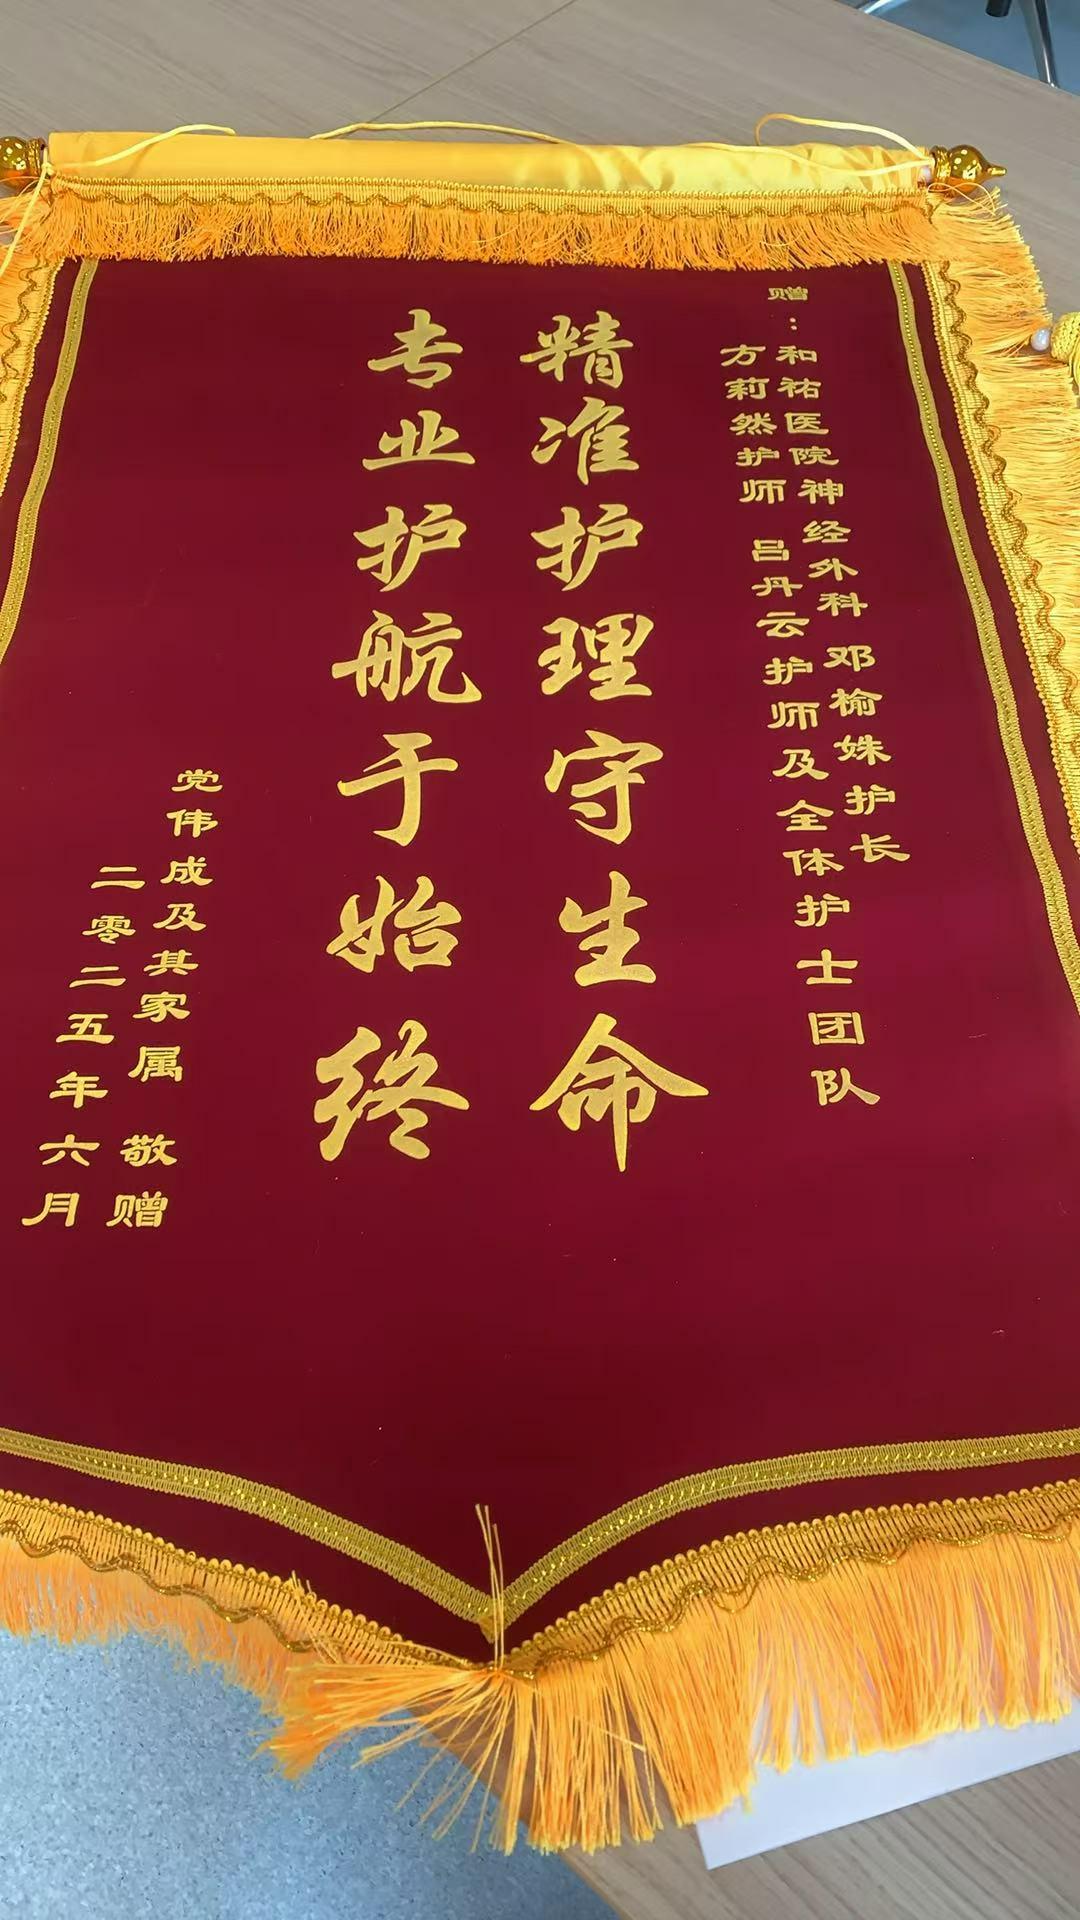 赠：
和祐医院神经外科 邓榆姝护长
方莉然护师 吕丹云护师及全体护士团队
精准护理守生命
专业护航于始终
党伟成及其家属 敬赠
二零二五年六月